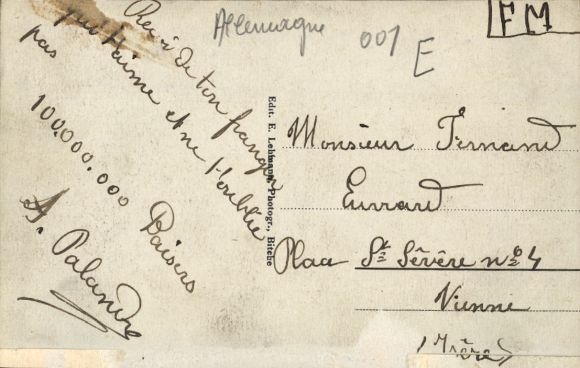 Allemagne 001 E
FM
Reçoi de ton frangin
qui t'aime et ne t'oublie
pas
100.000.000 Baisers
A. Palandre
Edit. E. Lehmann, Photogr., Bitche
Monsieur Fernand
Euvrard
Place Ste Sévère no 4
Vienne
(Isère)